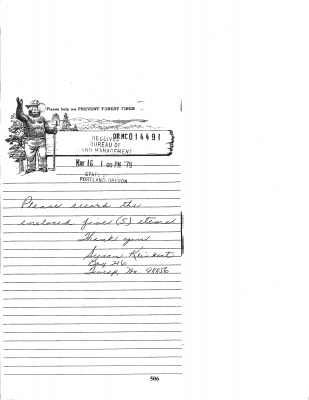 Please help me PREVENT FOREST FIRES
ORMC014491
RECEIVED
BUREAU OF
LAND MANAGEMENT
MAY 16 1 00 PM '79
STATE
PORTLAND, OREGON
Please record the
enclosed five (5) items.
Thank you
Susan Reinkert
Box 246
Twisp, Wa. 98856
506